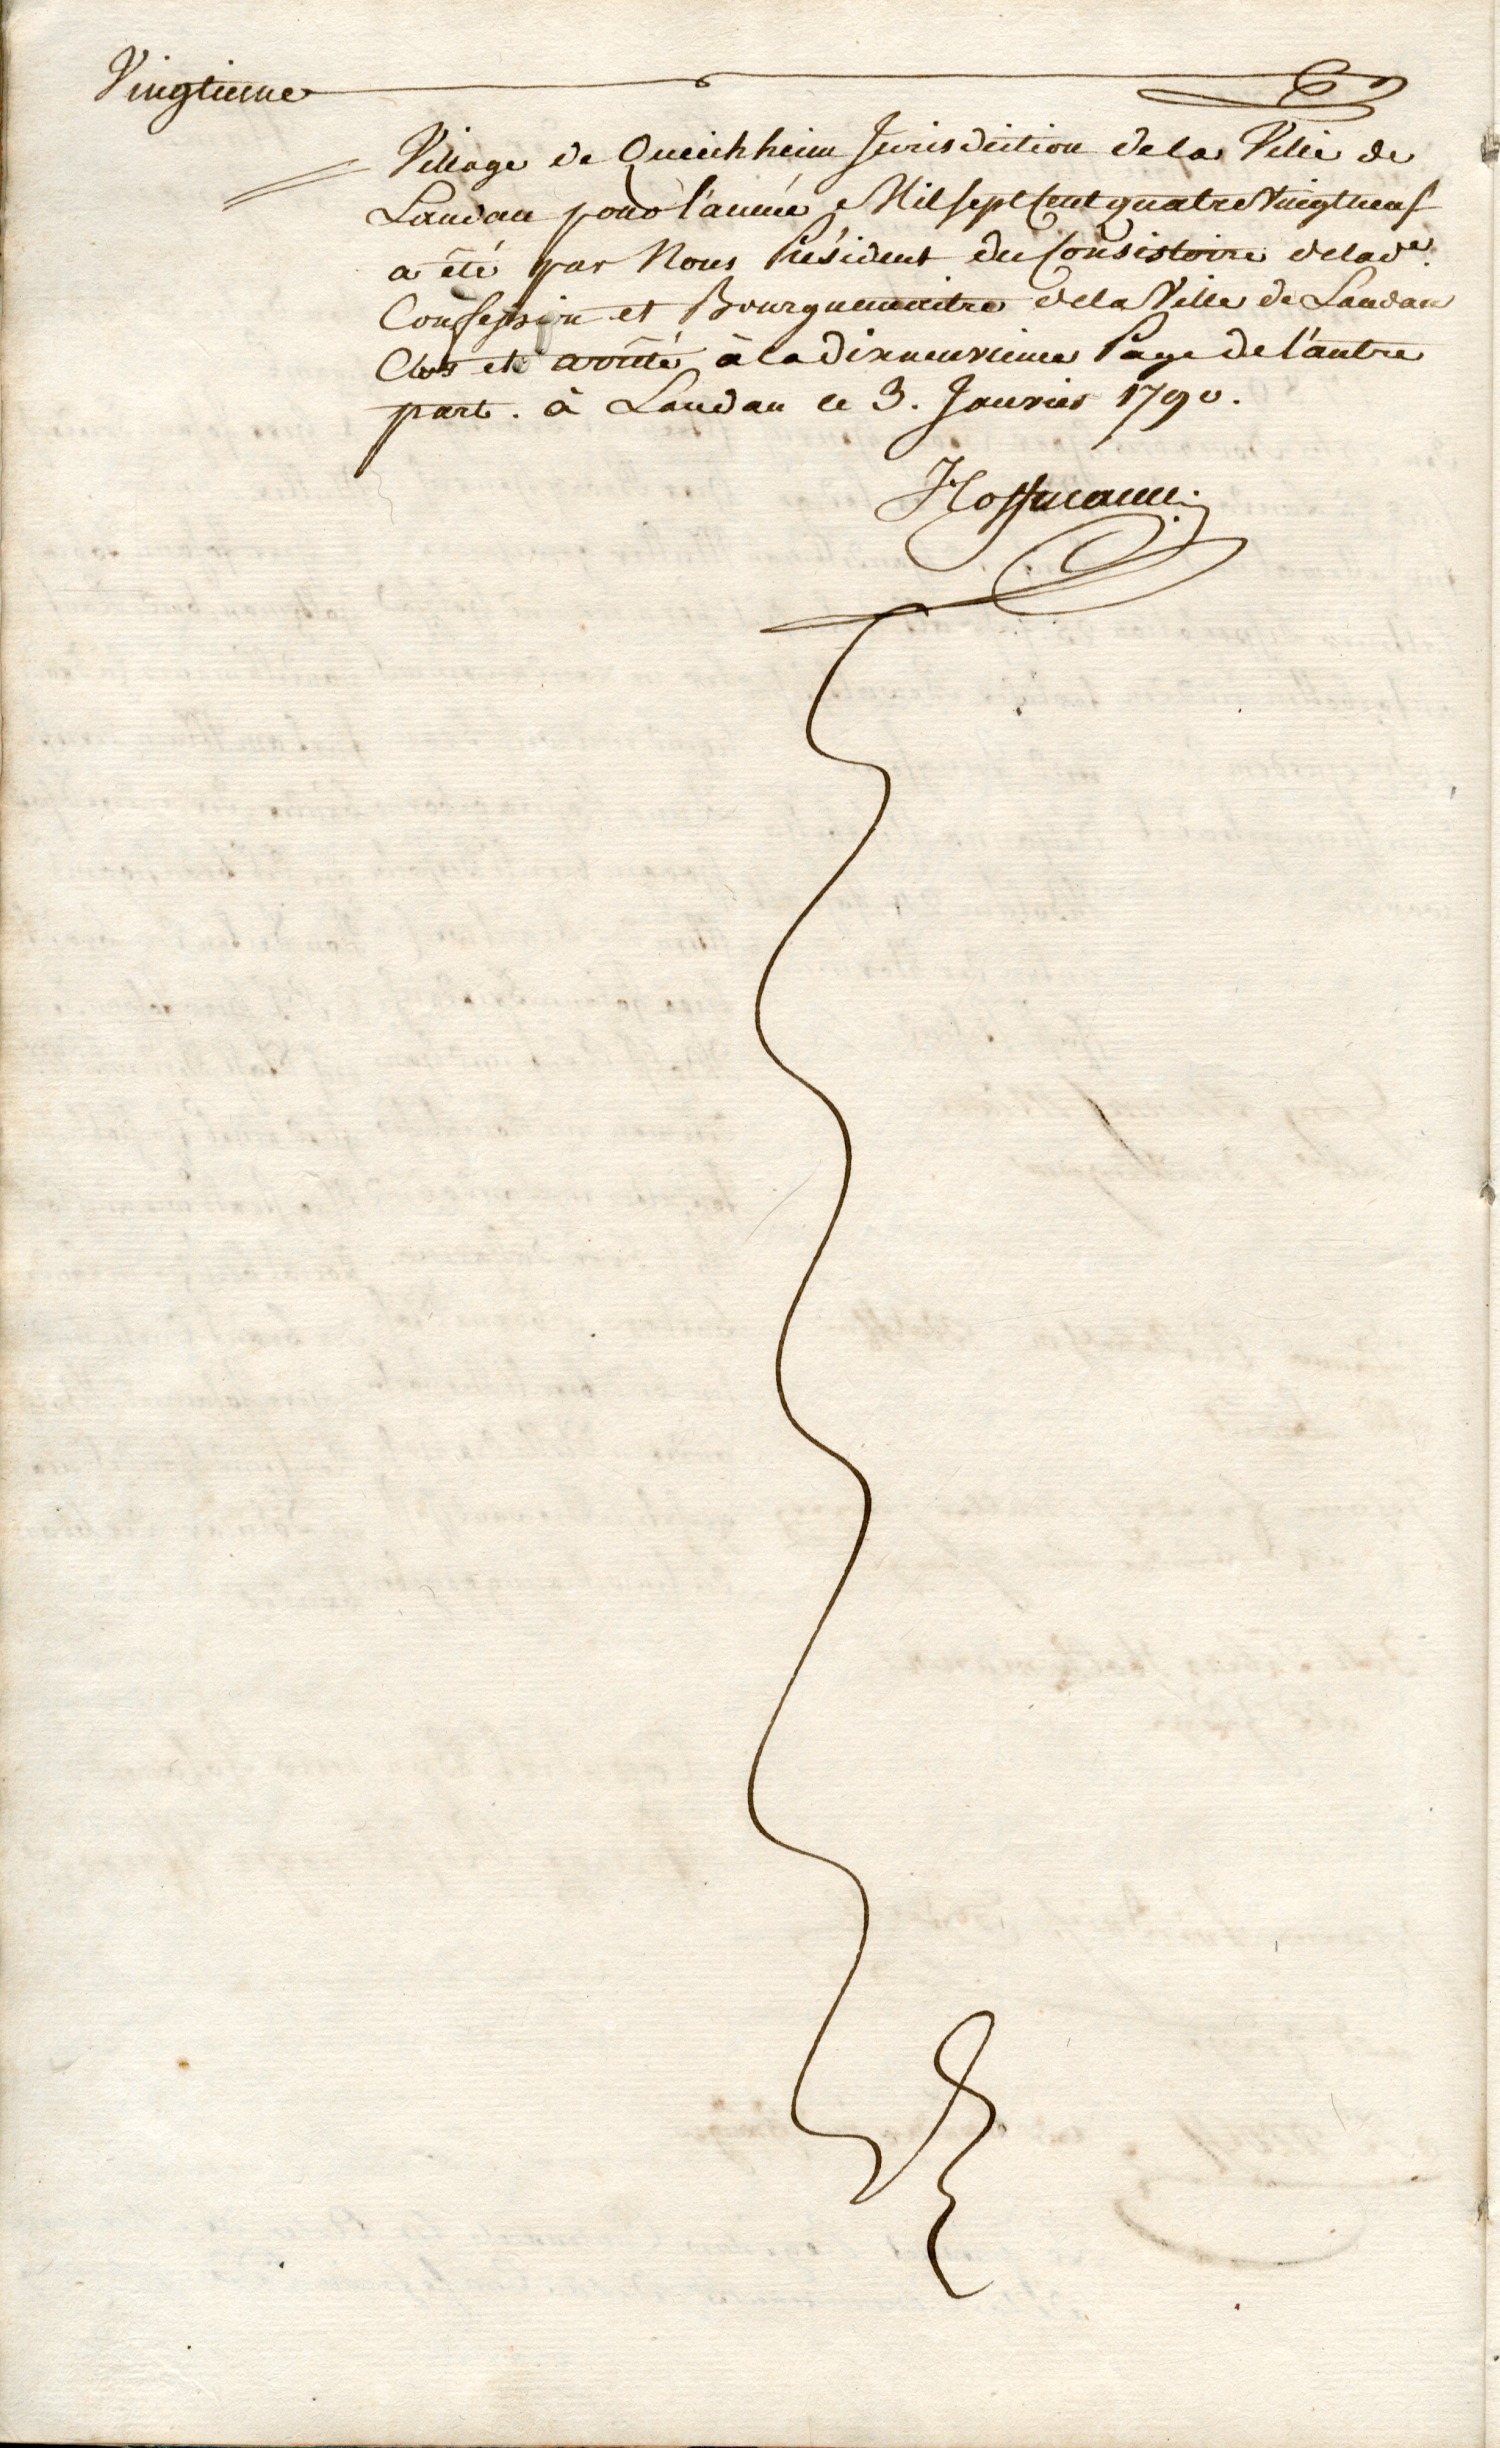 Vingtieme
Village de Queichheim Jurisdiction de la Ville de
Landau pour l'année Mil sept Cent quatre Vingt neuf
a été par Nous Président du Consistoire de lad.e
Confession et Bourguemaitre de la Ville de Landau
Clos et arrêté à la dixneuvieme Page de l'autre
part. à Landau ce 3. Janvier 1790.
Hoffmann.